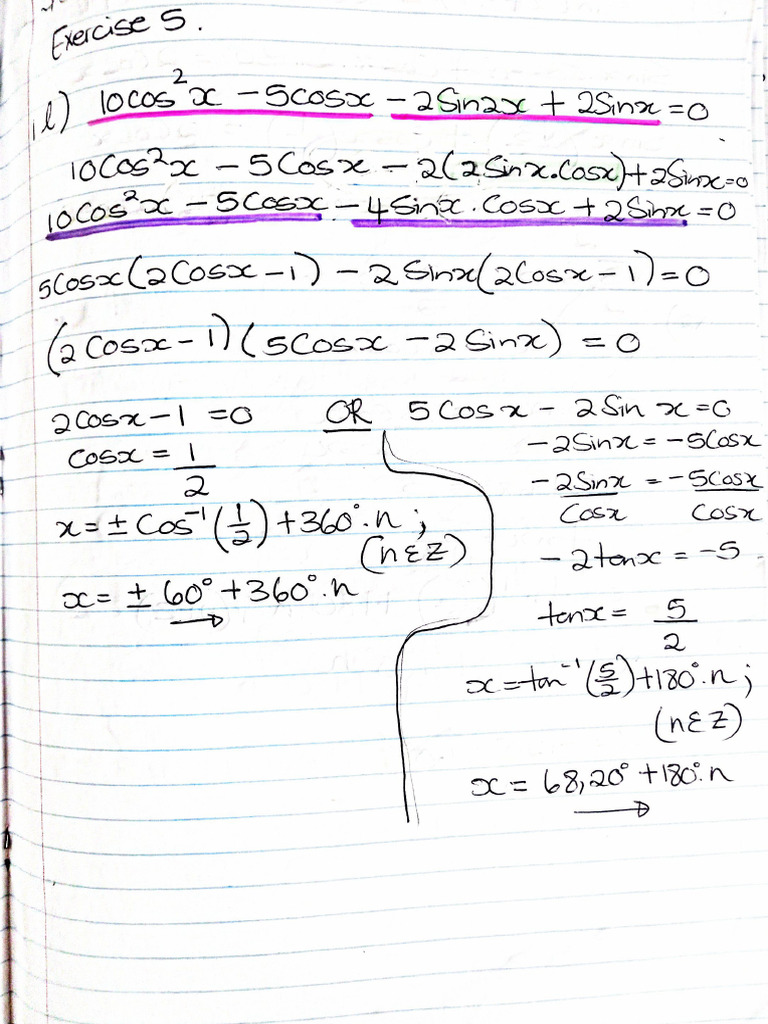 Exercise 5.
1l) 10cos²x - 5cosx - 2Sin2x + 2Sinx = 0
10Cos²x - 5Cosx - 2(2Sinx.Cosx) + 2Sinx = 0
10Cos²x - 5Cosx - 4Sinx.Cosx + 2Sinx = 0
5Cosx(2Cosx - 1) - 2Sinx(2Cosx - 1) = 0
(2Cosx - 1)(5Cosx - 2Sinx) = 0
2cosx - 1 = 0 OR 5Cosx - 2Sinx = 0
cosx = 1/2
x = ± Cos⁻¹(1/2) + 360°.n ;
(n ε Z)
x = ± 60° + 360°.n
-2Sinx = -5Cosx
-2Sinx/Cosx = -5Cosx/Cosx
-2tanx = -5
tanx = 5/2
x = tan⁻¹(5/2) + 180°.n ;
(n ε Z)
x = 68,20° + 180°.n